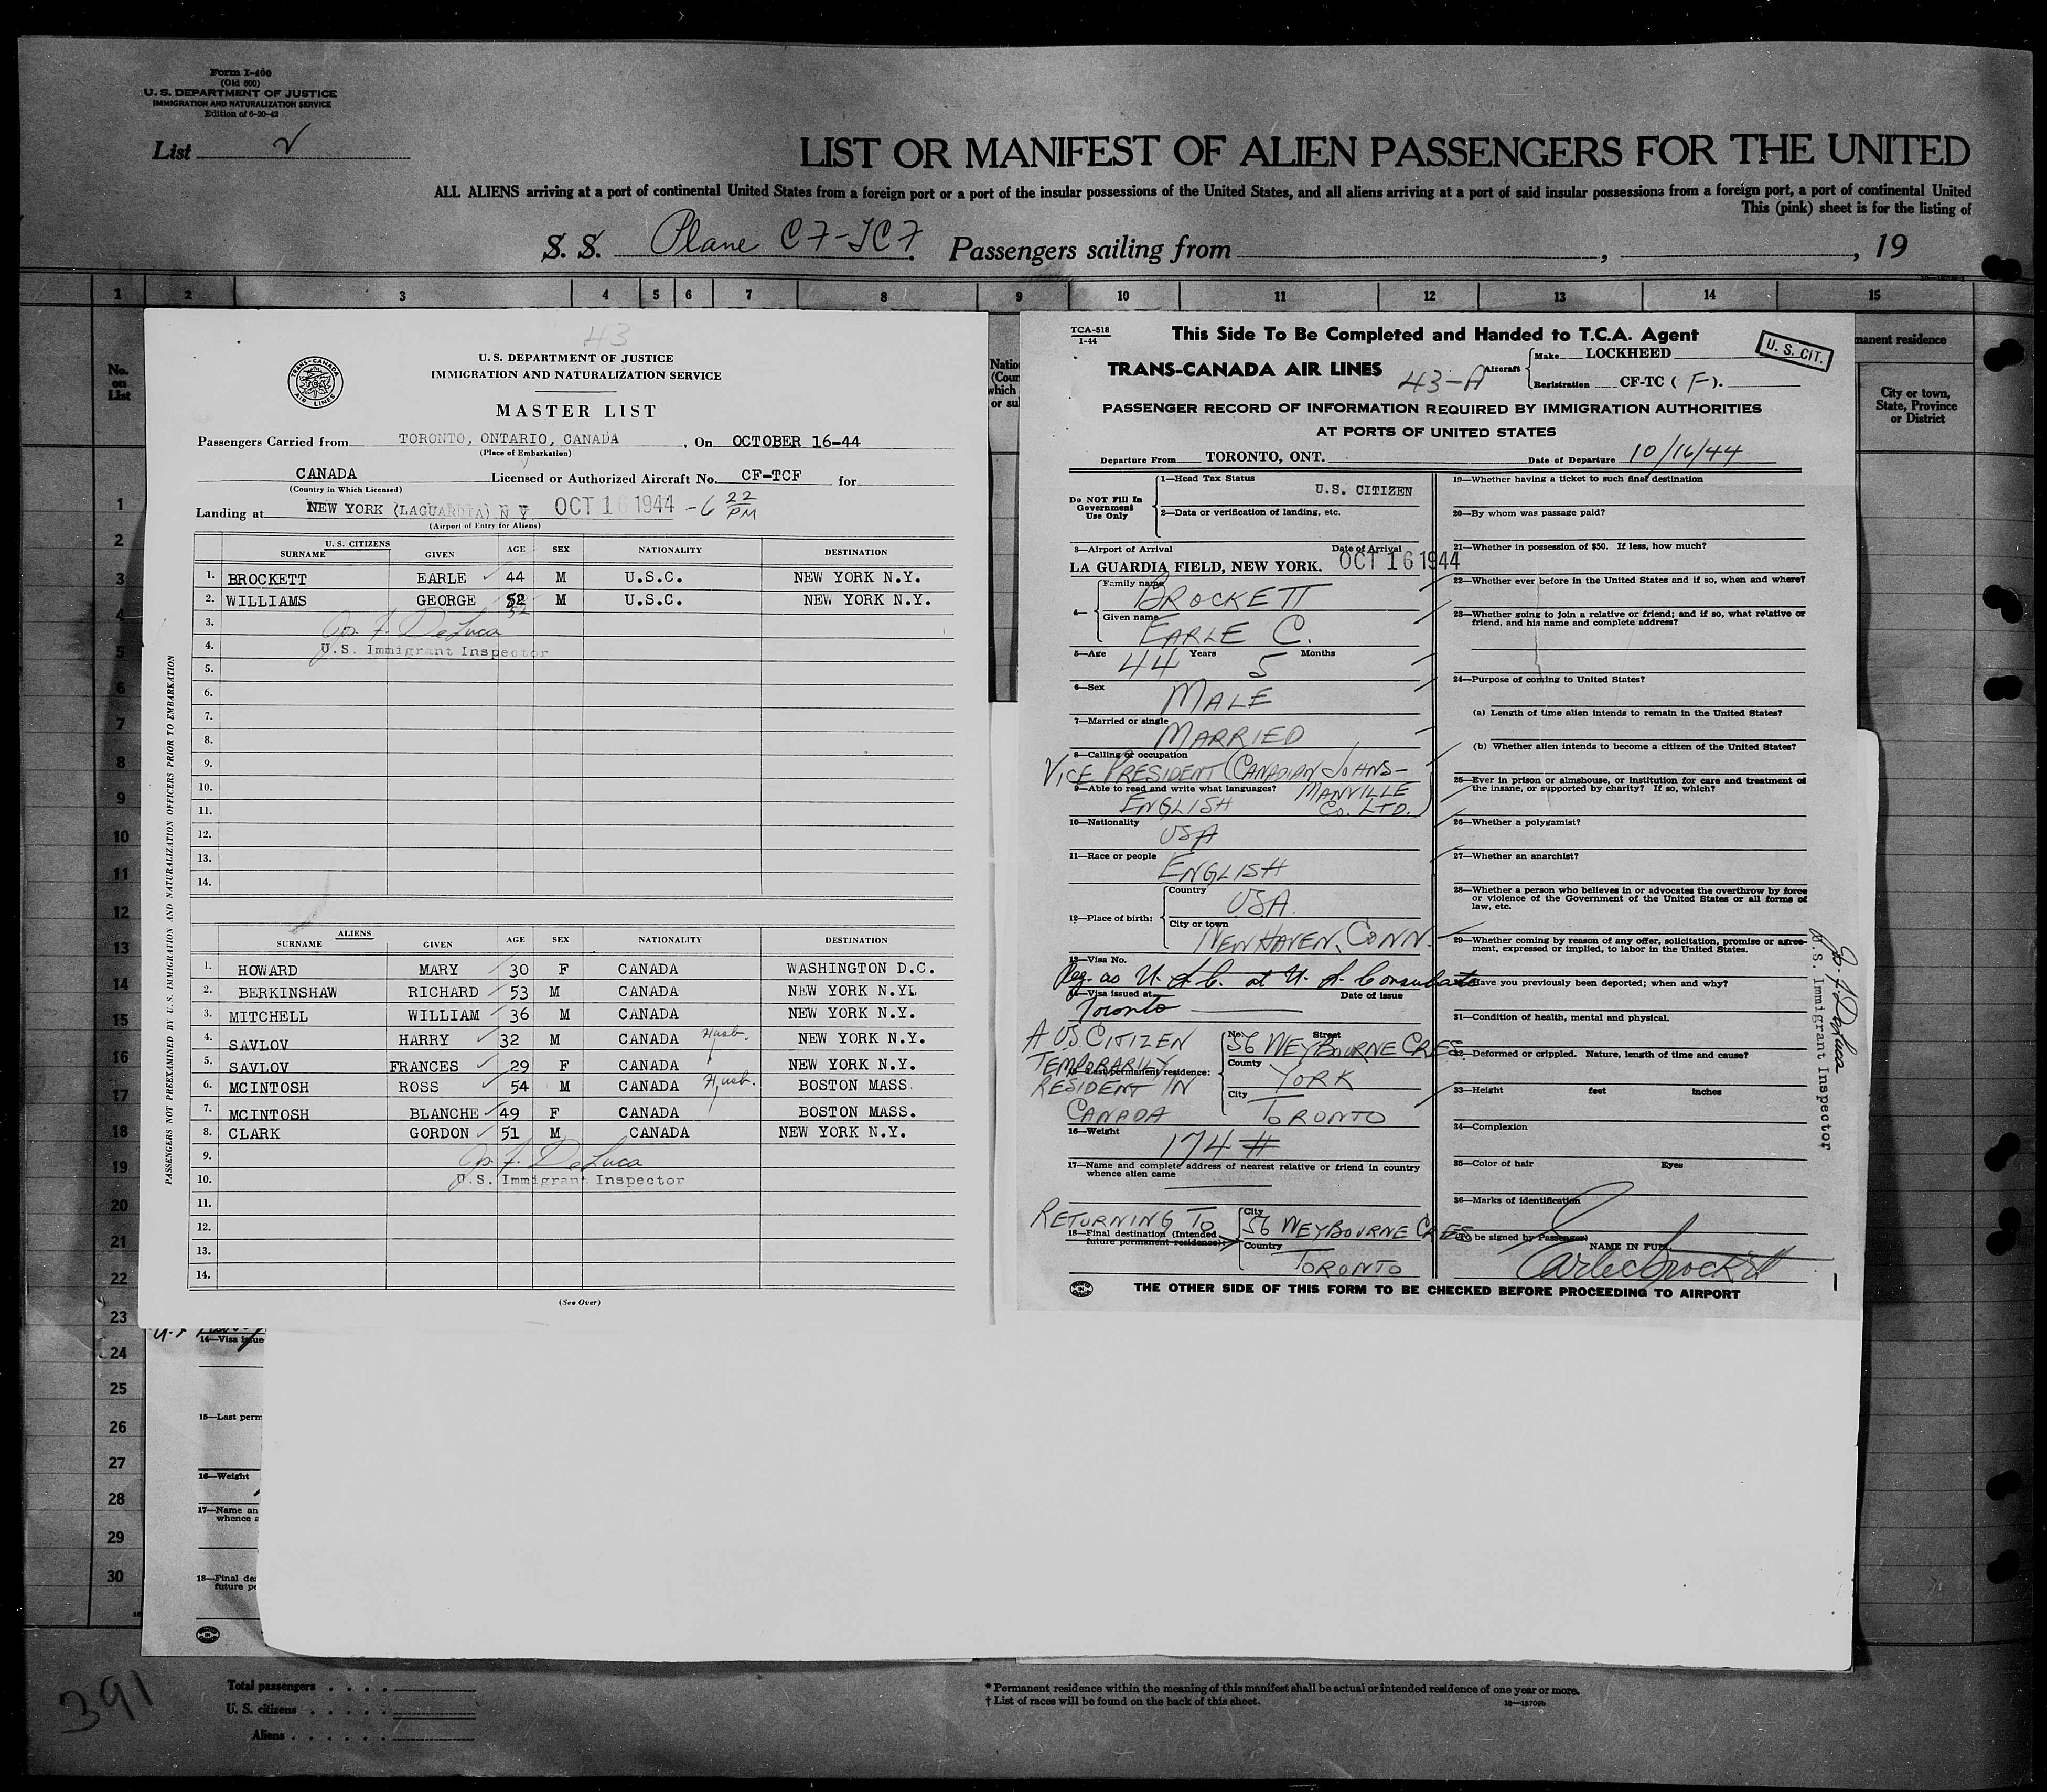 Form I-400
(Old 500)
U. S. DEPARTMENT OF JUSTICE
IMMIGRATION AND NATURALIZATION SERVICE
Edition of 6-20-42
List
LIST OR MANIFEST OF ALIEN PASSENGERS FOR THE UNITED
ALL ALIENS arriving at a port of continental United States from a foreign port or a port of the insular possessions of the United States, and all aliens arriving at a port of said insular possessions from a foreign port, a port of continental United
This (pink) sheet is for the listing of
S. S. Plane CF-TCF Passengers sailing from , , 19
1 2 3 4 5 6 7 8 9 10 11 12 13 14 15
No. on List
manent residence
City or town, State, Province or District
43
TRANS-CANADA AIR LINES
U. S. DEPARTMENT OF JUSTICE
IMMIGRATION AND NATURALIZATION SERVICE
MASTER LIST
Passengers Carried from TORONTO, ONTARIO, CANADA , On OCTOBER 16-44
(Place of Embarkation)
CANADA Licensed or Authorized Aircraft No. CF-TCF for
(Country in Which Licensed)
Landing at NEW YORK (LAGUARDIA) N Y. OCT 16 1944 - 6 22 PM
(Airport of Entry for Aliens)
U. S. CITIZENS
SURNAME GIVEN AGE SEX NATIONALITY DESTINATION
1. BROCKETT EARLE 44 M U.S.C. NEW YORK N.Y.
2. WILLIAMS GEORGE 52 M U.S.C. NEW YORK N.Y.
3. Jos. F. DeLuca
4. U.S. Immigrant Inspector
5.
6.
7.
8.
9.
10.
11.
12.
13.
14.
ALIENS
SURNAME GIVEN AGE SEX NATIONALITY DESTINATION
1. HOWARD MARY 30 F CANADA WASHINGTON D.C.
2. BERKINSHAW RICHARD 53 M CANADA NEW YORK N.Y.
3. MITCHELL WILLIAM 36 M CANADA NEW YORK N.Y.
4. SAVLOV HARRY 32 M CANADA Husb. NEW YORK N.Y.
5. SAVLOV FRANCES 29 F CANADA NEW YORK N.Y.
6. MCINTOSH ROSS 54 M CANADA Husb. BOSTON MASS.
7. MCINTOSH BLANCHE 49 F CANADA BOSTON MASS.
8. CLARK GORDON 51 M CANADA NEW YORK N.Y.
9. Jos. F. DeLuca
10. U.S. Immigrant Inspector
11.
12.
13.
14.
(See Over)
PASSENGERS NOT PREEXAMINED BY U.S. IMMIGRATION AND NATURALIZATION OFFICERS PRIOR TO EMBARKATION
TCA-518
1-44
This Side To Be Completed and Handed to T.C.A. Agent
U. S. CIT.
TRANS-CANADA AIR LINES 43-A Aircraft Make LOCKHEED
Registration CF-TC ( F ).
PASSENGER RECORD OF INFORMATION REQUIRED BY IMMIGRATION AUTHORITIES
AT PORTS OF UNITED STATES
Departure From TORONTO, ONT. Date of Departure 10/16/44
Do NOT Fill In Government Use Only
1—Head Tax Status U.S. CITIZEN
2—Data or verification of landing, etc.
3—Airport of Arrival Date of Arrival
LA GUARDIA FIELD, NEW YORK. OCT 16 1944
4— Family name BROCKETT
Given name EARLE C.
5—Age 44 Years 5 Months
6—Sex MALE
7—Married or single MARRIED
8—Calling or occupation
VICE PRESIDENT (CANADIAN JOHNS-MANVILLE CO. LTD.)
9—Able to read and write what languages? ENGLISH
10—Nationality USA
11—Race or people ENGLISH
12—Place of birth: Country USA.
City or town NEW HAVEN, CONN.
13—Visa No. Reg. as U. S. C. at U. S. Consulate
14—Visa issued at Toronto Date of issue
A U.S. CITIZEN TEMPORARILY RESIDENT IN CANADA
15—Last permanent residence: No. Street 56 WEYBOURNE CRES.
County YORK
City TORONTO
16—Weight 174 #
17—Name and complete address of nearest relative or friend in country whence alien came
RETURNING TO
18—Final destination (Intended future permanent residence): City 56 WEYBOURNE CRES
Country TORONTO
19—Whether having a ticket to such final destination
20—By whom was passage paid?
21—Whether in possession of $50. If less, how much?
22—Whether ever before in the United States and if so, when and where?
23—Whether going to join a relative or friend; and if so, what relative or friend, and his name and complete address?
24—Purpose of coming to United States?
(a) Length of time alien intends to remain in the United States?
(b) Whether alien intends to become a citizen of the United States?
25—Ever in prison or almshouse, or institution for care and treatment of the insane, or supported by charity? If so, which?
26—Whether a polygamist?
27—Whether an anarchist?
28—Whether a person who believes in or advocates the overthrow by force or violence of the Government of the United States or all forms of law, etc.
29—Whether coming by reason of any offer, solicitation, promise or agreement, expressed or implied, to labor in the United States.
Have you previously been deported; when and why?
31—Condition of health, mental and physical.
32—Deformed or crippled. Nature, length of time and cause?
33—Height feet inches
34—Complexion
35—Color of hair Eyes
36—Marks of identification
(To be signed by Passenger)
NAME IN FULL
Earle C Brockett
THE OTHER SIDE OF THIS FORM TO BE CHECKED BEFORE PROCEEDING TO AIRPORT
Jos. F. DeLuca
U.S. Immigrant Inspector
1
2
3
4
5
6
7
8
9
10
11
12
13
14
15
16
17
18
19
20
21
22
23
24
25
26
27
28
29
30
14—Visa issue
15—Last perm
16—Weight
17—Name an
whence a
18—Final des
future pe
391
Total passengers
U. S. citizens
Aliens
* Permanent residence within the meaning of this manifest shall be actual or intended residence of one year or more.
† List of races will be found on the back of this sheet.